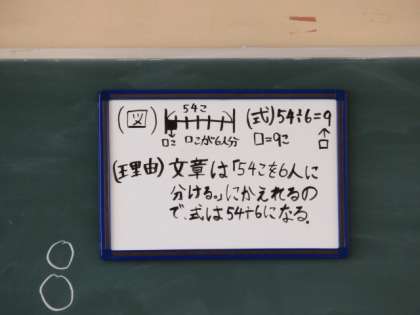 (図) 54こ (式)54÷6=9
□こ □こが6人分 □=9こ ↑□
(理由)文章は「54こを6人に
分ける。」にかえれるの
で、式は54÷6になる。